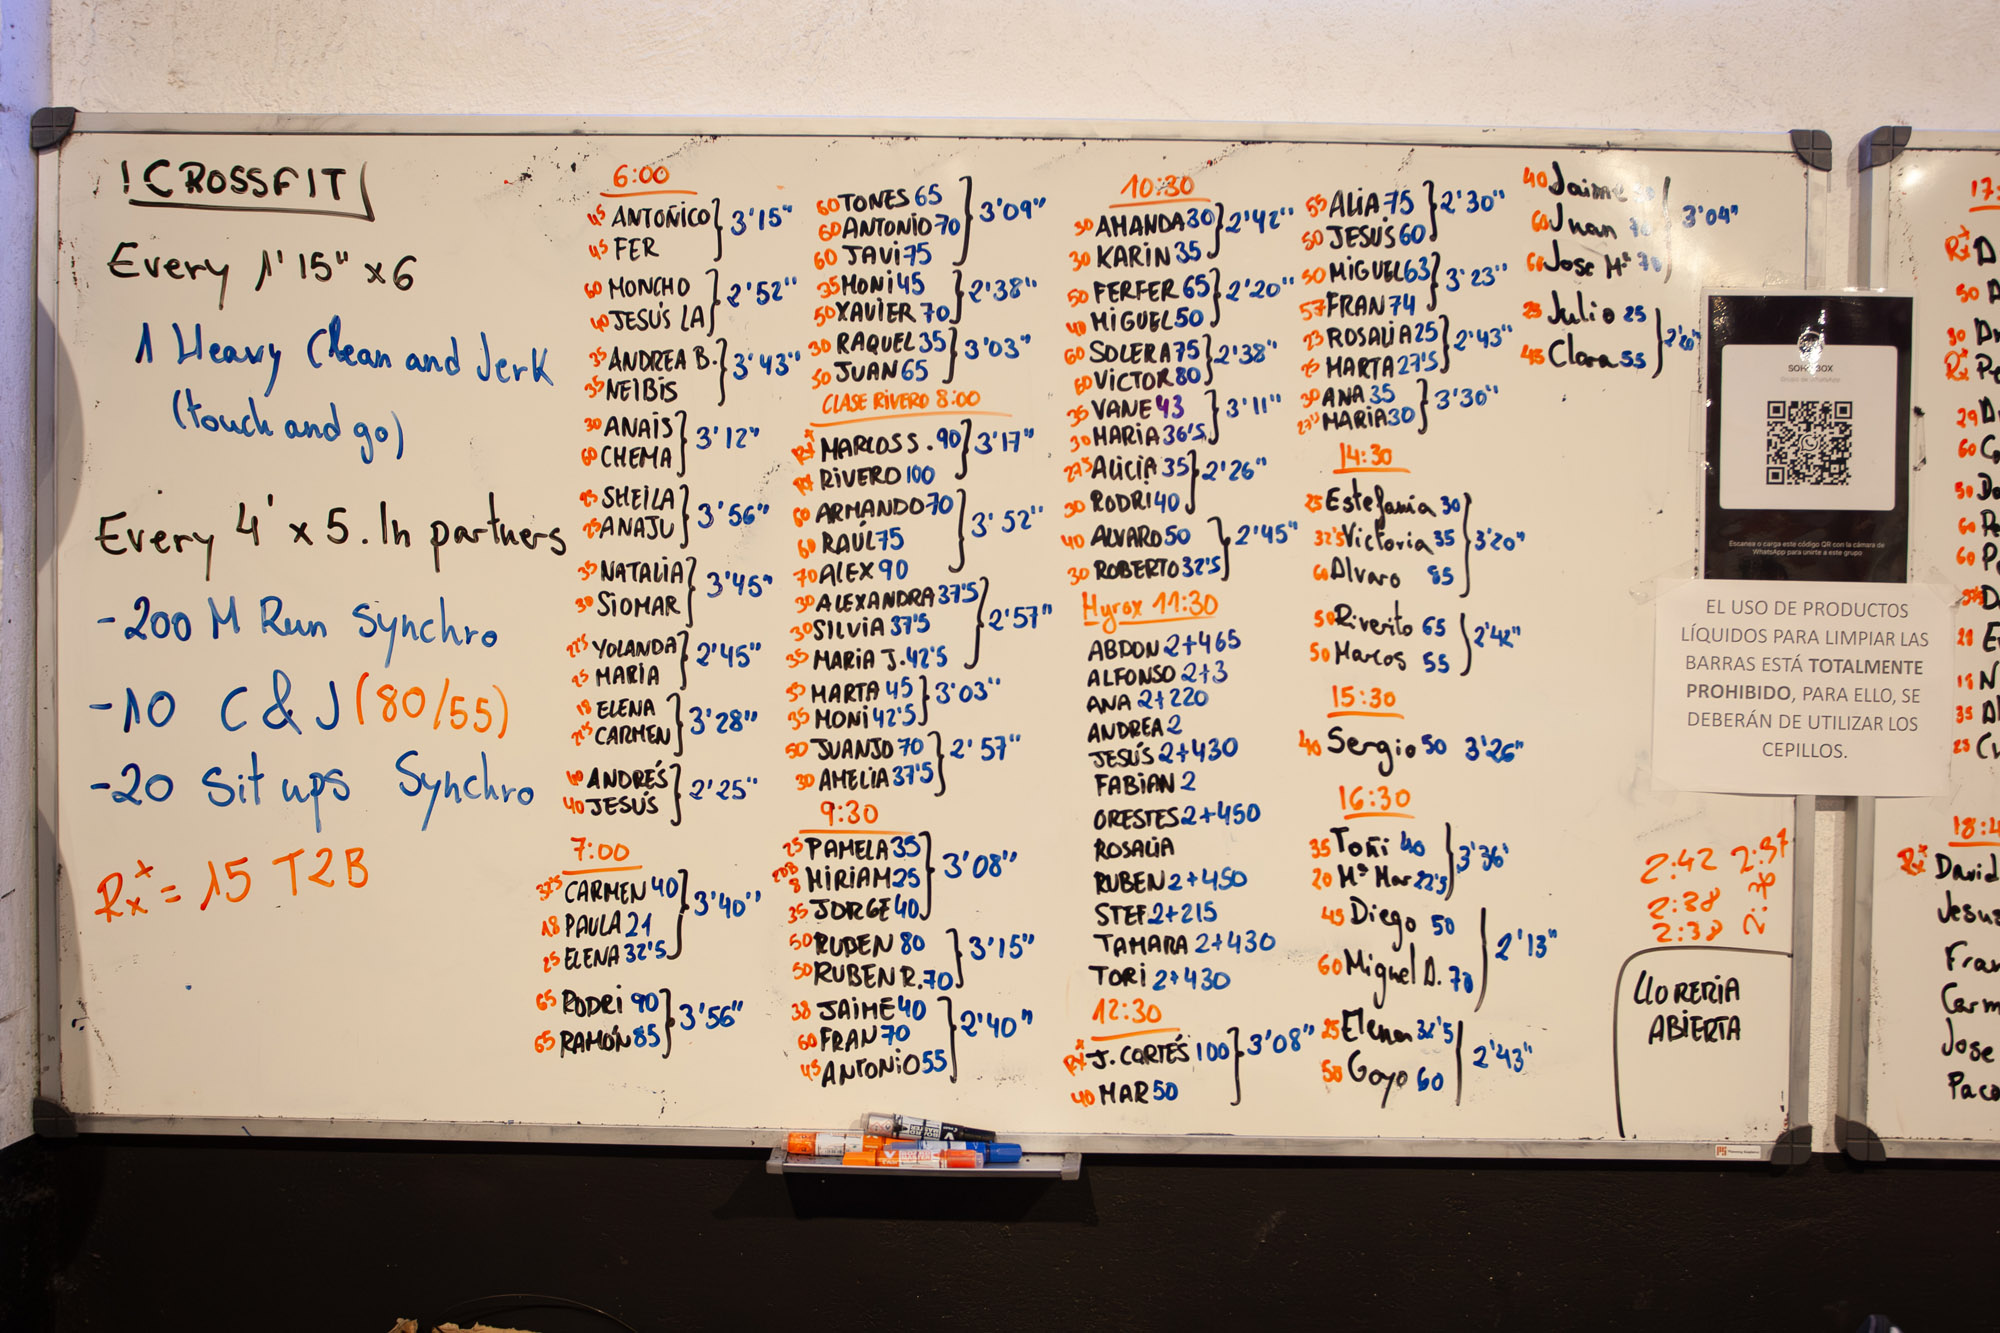 !CROSSFIT
Every 1'15" x 6
1 Heavy Clean and Jerk
(touch and go)
Every 4' x 5. In partners
-200 M Run Synchro
-10 C & J (80/55)
-20 Sit ups Synchro
Rx+ = 15 T2B
6:00
45 ANTOÑICO 3'15"
45 FER
60 MONCHO 2'52"
40 JESÚS LA
35 ANDREA B. 3'43"
35 NEIBIS
30 ANAIS 3'12"
60 CHEMA
25 SHEILA 3'56"
25 ANAJU
35 NATALIA 3'45"
30 SIOMAR
22'5 YOLANDA 2'45"
25 MARIA
18 ELENA 3'28"
22'5 CARMEN
60 ANDRÉS 2'25"
40 JESÚS
7:00
32'5 CARMEN 40 3'40"
18 PAULA 21
25 ELENA 32'5
65 RODRI 90 3'56"
65 RAMÓN 85
60 TONES 65 3'09"
60 ANTONIO 70
60 JAVI 75
35 MONI 45 2'38"
50 XAVIER 70
30 RAQUEL 35 3'03"
50 JUAN 65
CLASE RIVERO 8:00
Rx+ MARCOS S. 90 3'17"
Rx RIVERO 100
60 ARMANDO 70 3'52"
60 RAÚL 75
70 ALEX 90
30 ALEXANDRA 37'5 2'57"
30 SILVIA 37'5
35 MARIA J. 42'5
35 MARTA 45 3'03"
35 MONI 42'5
50 JUANJO 70 2'57"
30 AMELIA 37'5
9:30
25 PAMELA 35 3'08"
8 MIRIAM 25
35 JORGE 40
50 RUDEN 80 3'15"
50 RUBEN R. 70
38 JAIME 40 2'40"
60 FRAN 70
45 ANTONIO 55
10:30
30 AMANDA 30 2'42"
30 KARIN 35
50 FERFER 65 2'20"
40 MIGUEL 50
60 SOLERA 75 2'38"
60 VICTOR 80
35 VANE 43 3'11"
30 MARIA 36'5
27'5 ALICIA 35 2'26"
30 RODRI 40
40 ALVARO 50 2'45"
30 ROBERTO 32'5
Hyrox 11:30
ABDON 2+465
ALFONSO 2+3
ANA 2+220
ANDREA 2
JESÚS 2+430
FABIAN 2
ORESTES 2+450
ROSALIA
RUBEN 2+450
STEF 2+215
TAMARA 2+430
TORI 2+430
12:30
Rx+ J. CORTÉS 100 3'08"
40 MAR 50
55 ALIA 75 2'30"
50 JESÚS 60
50 MIGUEL 63 3'23"
57 FRAN 74
23 ROSALIA 25 2'43"
25 MARTA 27'5
30 ANA 35 3'30"
27'5 MARIA 30
14:30
25 Estefania 30 3'20"
32'5 Victoria 35
60 Alvaro 85
50 Riverito 65 2'42"
50 Marcos 55
15:30
40 Sergio 50 3'26"
16:30
35 Toñi 40 3'36'
20 Mª Mar 22'5
45 Diego 50 2'13"
60 Miguel D. 70
25 Elena 32'5 2'43"
50 Goyo 60
40 Jaime 3'04"
60 Juan 70
Jose Mª
25 Julio 25
45 Clara 55
SOHO BOX
Grupo de WhatsApp
Escanea o carga este código QR con la cámara de
WhatsApp para unirte a este grupo
EL USO DE PRODUCTOS
LÍQUIDOS PARA LIMPIAR LAS
BARRAS ESTÁ TOTALMENTE
PROHIBIDO, PARA ELLO, SE
DEBERÁN DE UTILIZAR LOS
CEPILLOS.
2:42 2:37
2:38
2:38
LLORERIA
ABIERTA
Rx+ David
Jesus
Fran
Carm
Jose
Paco